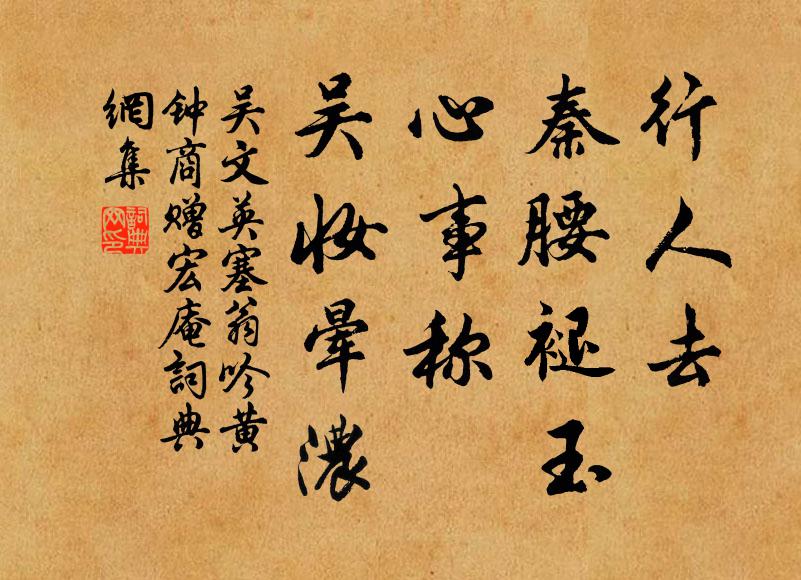 行人去
秦腰褪玉
心事称
吴妆晕濃
吴文英塞翁吟黄
钟商赠宏庵詞典
網集
詞典
网印